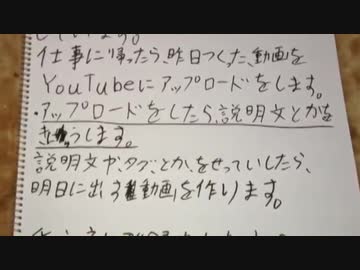 しています。
仕事に帰ったら、昨日つくった、動画を
YouTubeにアップロードをします。
・アップロードをしたら、説明文とかを
します。
説明文や、タグ、とか、をせっていしたら、
明日に出す動画を作ります。